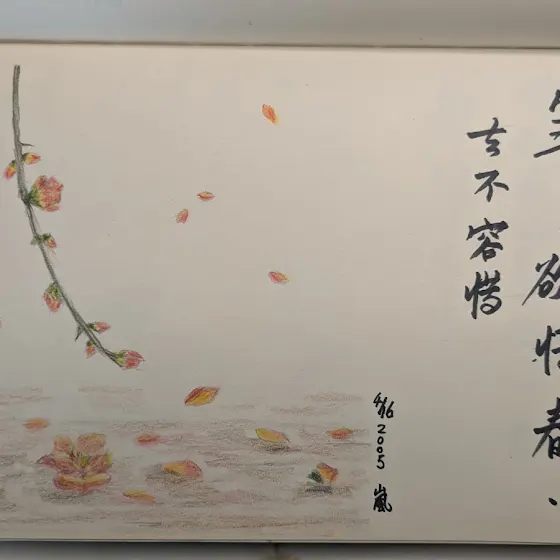 欲惜春、
去不容惜
4/16 2005 嵐